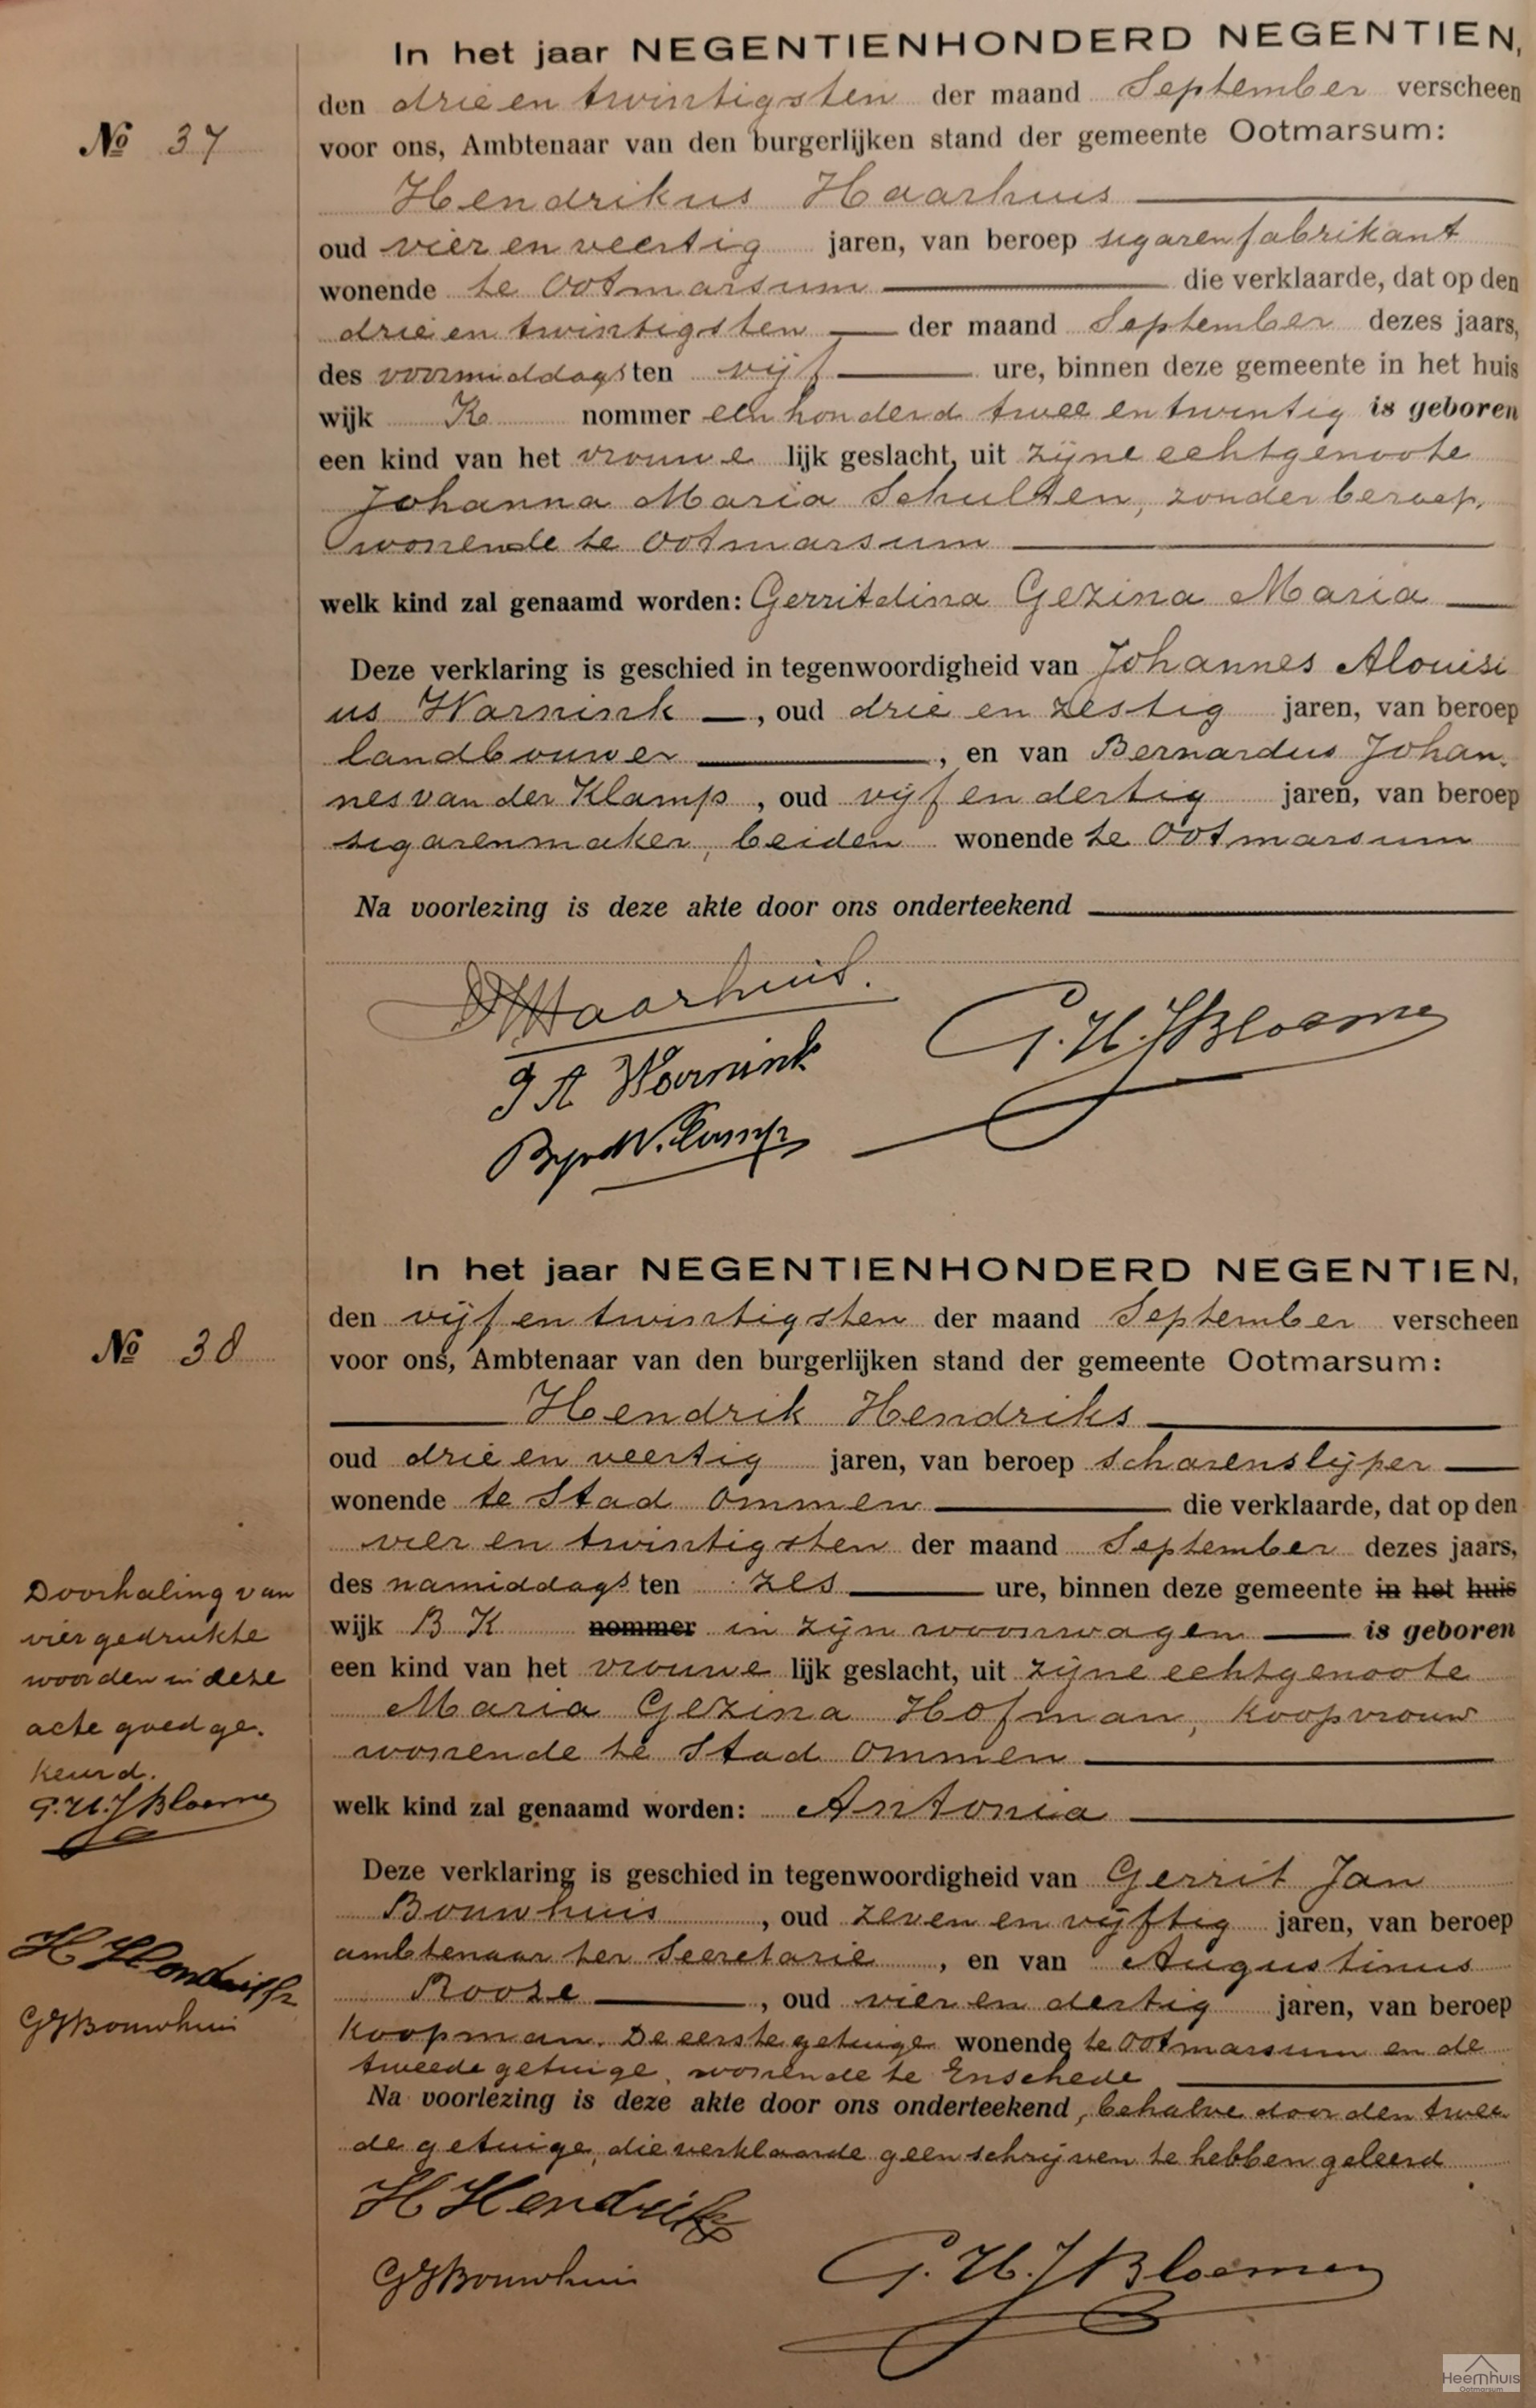 In het jaar NEGENTIENHONDERD NEGENTIEN,
den drie en twintigsten der maand September verscheen
№ 37
voor ons, Ambtenaar van den burgerlijken stand der gemeente Ootmarsum:
Hendrikus Haarhuis
oud vier en veertig jaren, van beroep sigarenfabrikant
wonende te Ootmarsum die verklaarde, dat op den
drie en twintigsten der maand September dezes jaars,
des voormiddags ten vijf ure, binnen deze gemeente in het huis
wijk K nommer een honderd twee en twintig is geboren
een kind van het vrouwe lijk geslacht, uit zijne echtgenoote
Johanna Maria Schulten, zonder beroep,
wonende te Ootmarsum
welk kind zal genaamd worden: Gerritdina Gezina Maria
Deze verklaring is geschied in tegenwoordigheid van Johannes Alouisi
us Warnink, oud drie en zestig jaren, van beroep
landbouwer, en van Bernardus Johan-
nes van der Klamp, oud vijf en dertig jaren, van beroep
sigarenmaker, beiden wonende te Ootmarsum
Na voorlezing is deze akte door ons onderteekend
Haarhuis.
G. H. J Bloemen
J A Warnink
In het jaar NEGENTIENHONDERD NEGENTIEN,
den vijf en twintigsten der maand September verscheen
№ 38
voor ons, Ambtenaar van den burgerlijken stand der gemeente Ootmarsum:
Hendrik Hendriks
oud drie en veertig jaren, van beroep scharenslijper
wonende te Stad Ommen die verklaarde, dat op den
vier en twintigsten der maand September dezes jaars,
des namiddags ten zes ure, binnen deze gemeente in het huis
wijk B K nommer in zijn woonwagen is geboren
een kind van het vrouwe lijk geslacht, uit zijne echtgenoote
Maria Gezina Hofman, koopvrouw
wonende te Stad Ommen
welk kind zal genaamd worden: Antonia
Doorhaling van
vier gedrukte
woorden in deze
acte goedge-
keurd.
G. H. J Bloemen
H Hendriks
GJBouwhuis
Deze verklaring is geschied in tegenwoordigheid van Gerrit Jan
Bouwhuis, oud zeven en vijftig jaren, van beroep
ambtenaar ter Secretarie, en van Augustinus
Rooze, oud vier en dertig jaren, van beroep
koopman. De eerste getuige wonende te Ootmarsum en de
tweede getuige, wonende te Enschede
Na voorlezing is deze akte door ons onderteekend, behalve door den twee-
de getuige, die verklaarde geen schrijven te hebben geleerd
H Hendriks
GJBouwhuis
G. H. J Bloemen
Heemhuis
Ootmarsum